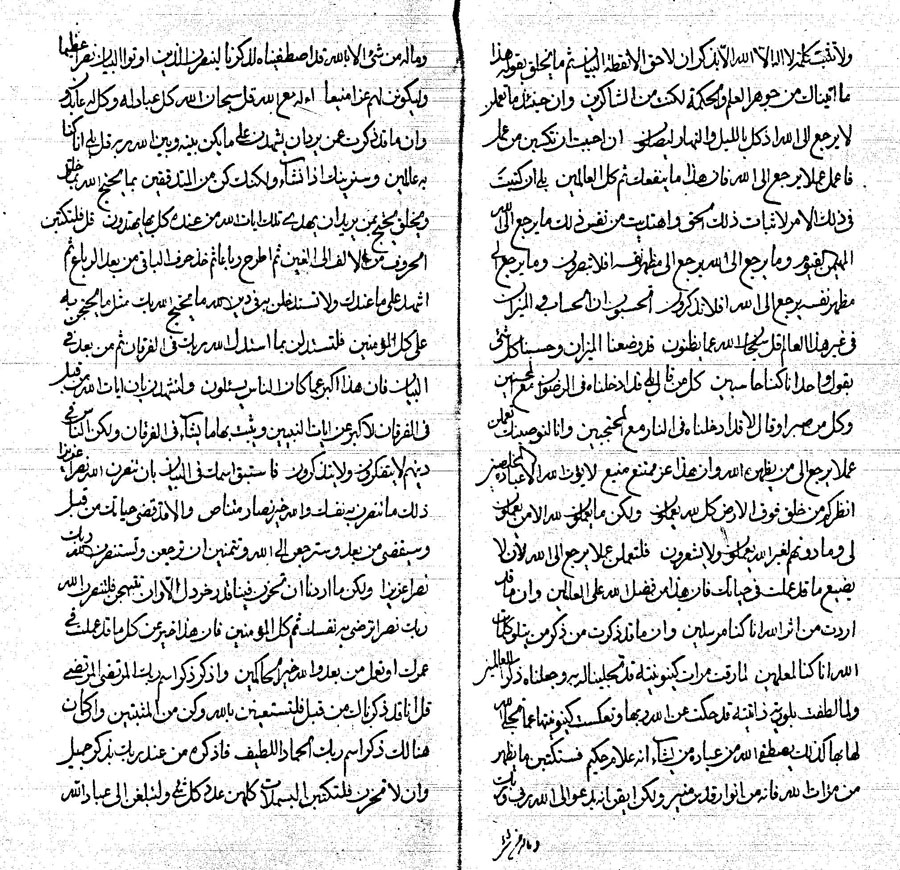 ولا تثبت بكلمة لا اله الا الله الا بذكر ان لا حق الا نقطة البيان ثم ما يخلق بقوله هذا
ما اتيناك من جوهر العلم والحكمة لكنت من الشاكرين وان حينئذ ما تعملن
لا يرجع الى الله اذ كل بالليل والنهار ليصلون ان احببت ان تكتبن من عمل
فاعمل عملا يرجع الى الله فان هذا ما ينفعك ثم كل العالمين بلى ان كتبت
فى ذلك الامر لا ثبات ذلك الحق واهتديت من نفس ذلك ما يرجع الى الله
المهيمن القيوم وما يرجع الى الله يرجع الى مظهر نفسه افلا تبصرون وما يرجع الى
مظهر نفسه يرجع الى الله افلا تذكرون اتحسبون ان الحساب والميزان
فى غير هذا العالم قل سبحان الله عما يظنون قد وضعنا الميزان وحسبنا كل شئ
بقول واحد انا كنا حاسبين كل من قال بلى قد ادخلناه فى الرضوان مع المحسنين
وكل من صبر او قال لا قد ادخلناه فى النار مع المحتجبين وانا لنوصينك تعملن
عملا يرجع الى من يظهره الله وان هذا عز ممتنع منيع لا يؤت الله الا عباده المخلصين
انظر كم من خلق فوق الارض كل لله يعملون ولكن ما يعملون لله الا من يعملون
لى وما دونهم لغير الله يعملون ولا يشعرون فلتعملن عملا يرجع الى الله لان لا
يضيع ما قد عملت فى حياتك فان هذا من فضل الله على العالمين وان ما قد
اردت من اثر الله انا كنا مرسلين وان ما قد ذكرت من ذكر من يتلو كتاب
الله انا كنا لمعلمين لما رقت مرات كينونيته قد تجلينا له به وجعلناه ذكرا للعالمين
ولما لطفت بلورية ذاتيته قد حكت عن الله ربها وتعكست كينونتها عما تجلى الله
لها بها كذلك يصطفى الله من عباده من يشاء انه علام حكيم فستكتبن ما يظهر
من مرات لله فانه من انوار قدس منير ولكن ايقن انه يدعو الى الله برقى ربك
وما له من شئ الا بالله قد اصطفيناه لذكرنا لينصرن الذين اوتوا البيان نصرا عظيما
وليكونن لهم عزا منيعا اءله مع الله قل سبحان الله كل عباد له وكل له عابدون
وان ما قد ذكرت عمن يريد ان يشهدن على ما يكن بينه وبين الله ربه قل بلى انا كنا
به عالمين وسنرينك اذا نشاء ولكنك كن من المتدققين بما يحتج الله به خلق
ويخلق بحتج بمن يريد ان يهدى تلك ايات الله من عنده كل بها يهتدون قل فلتكتبن
الحروف من الالف الى الغين ثم اطرح رباعا ثم خذ حرف الباقى من بعد الرباع ثم
اشهد على ما عندك ولا تستدلن برقى دين الله ما يحتج الله ربك مثل ما يحتجن به
على كل المؤمنين فلتستدلن بما استدل الله ربك فى الفرقان ثم من بعد فى
البيان فان هذا اكبر عما كان الناس يسئلون ولتشهدن بان ايات الله من قبل
فى الفرقان لاكبر عن ايات النبيين ويثبت بها ما يشاء فى الفرقان ولكن الناس فى
دينهم لا يتفكرون ولا يتذكرون فاستبق اسمك فى البيان بان تنصرن الله نصرا عزيزا
ذلك ما تنصرن به نفسك والله خير نصار مناص والا قد قضى حياتك من قبل
وسيقضى من بعد وسترجعن الى الله وتتمنين ان ترجعن ولتستنصرن الله ربك
نصرا عزيزا ولكن ما اردنا ان تحزن فينا قدر خردل الا وان تبتهجن فلتنصرن الله
ربك نصرا ترضى به نفسك ثم كل المؤمنين فان هذا خير عن كل ما قد عملت فى
عمرك او تعمل من بعد والله خير الحاكمين واذكر ذكر اسم ربك المرتضى المرتضى
قل انا قد ذكرناك من قبل فلتستعينن بالله وكن من المثبتين وان كان
هنالك ذكر اسم ربك الجواد اللطيف فاذكره من عند ربك بذكر جميل
وان لا تحزن فلتكتبن البسملات كلهن عدد كل شئ ولتبلغن الى عباد الله